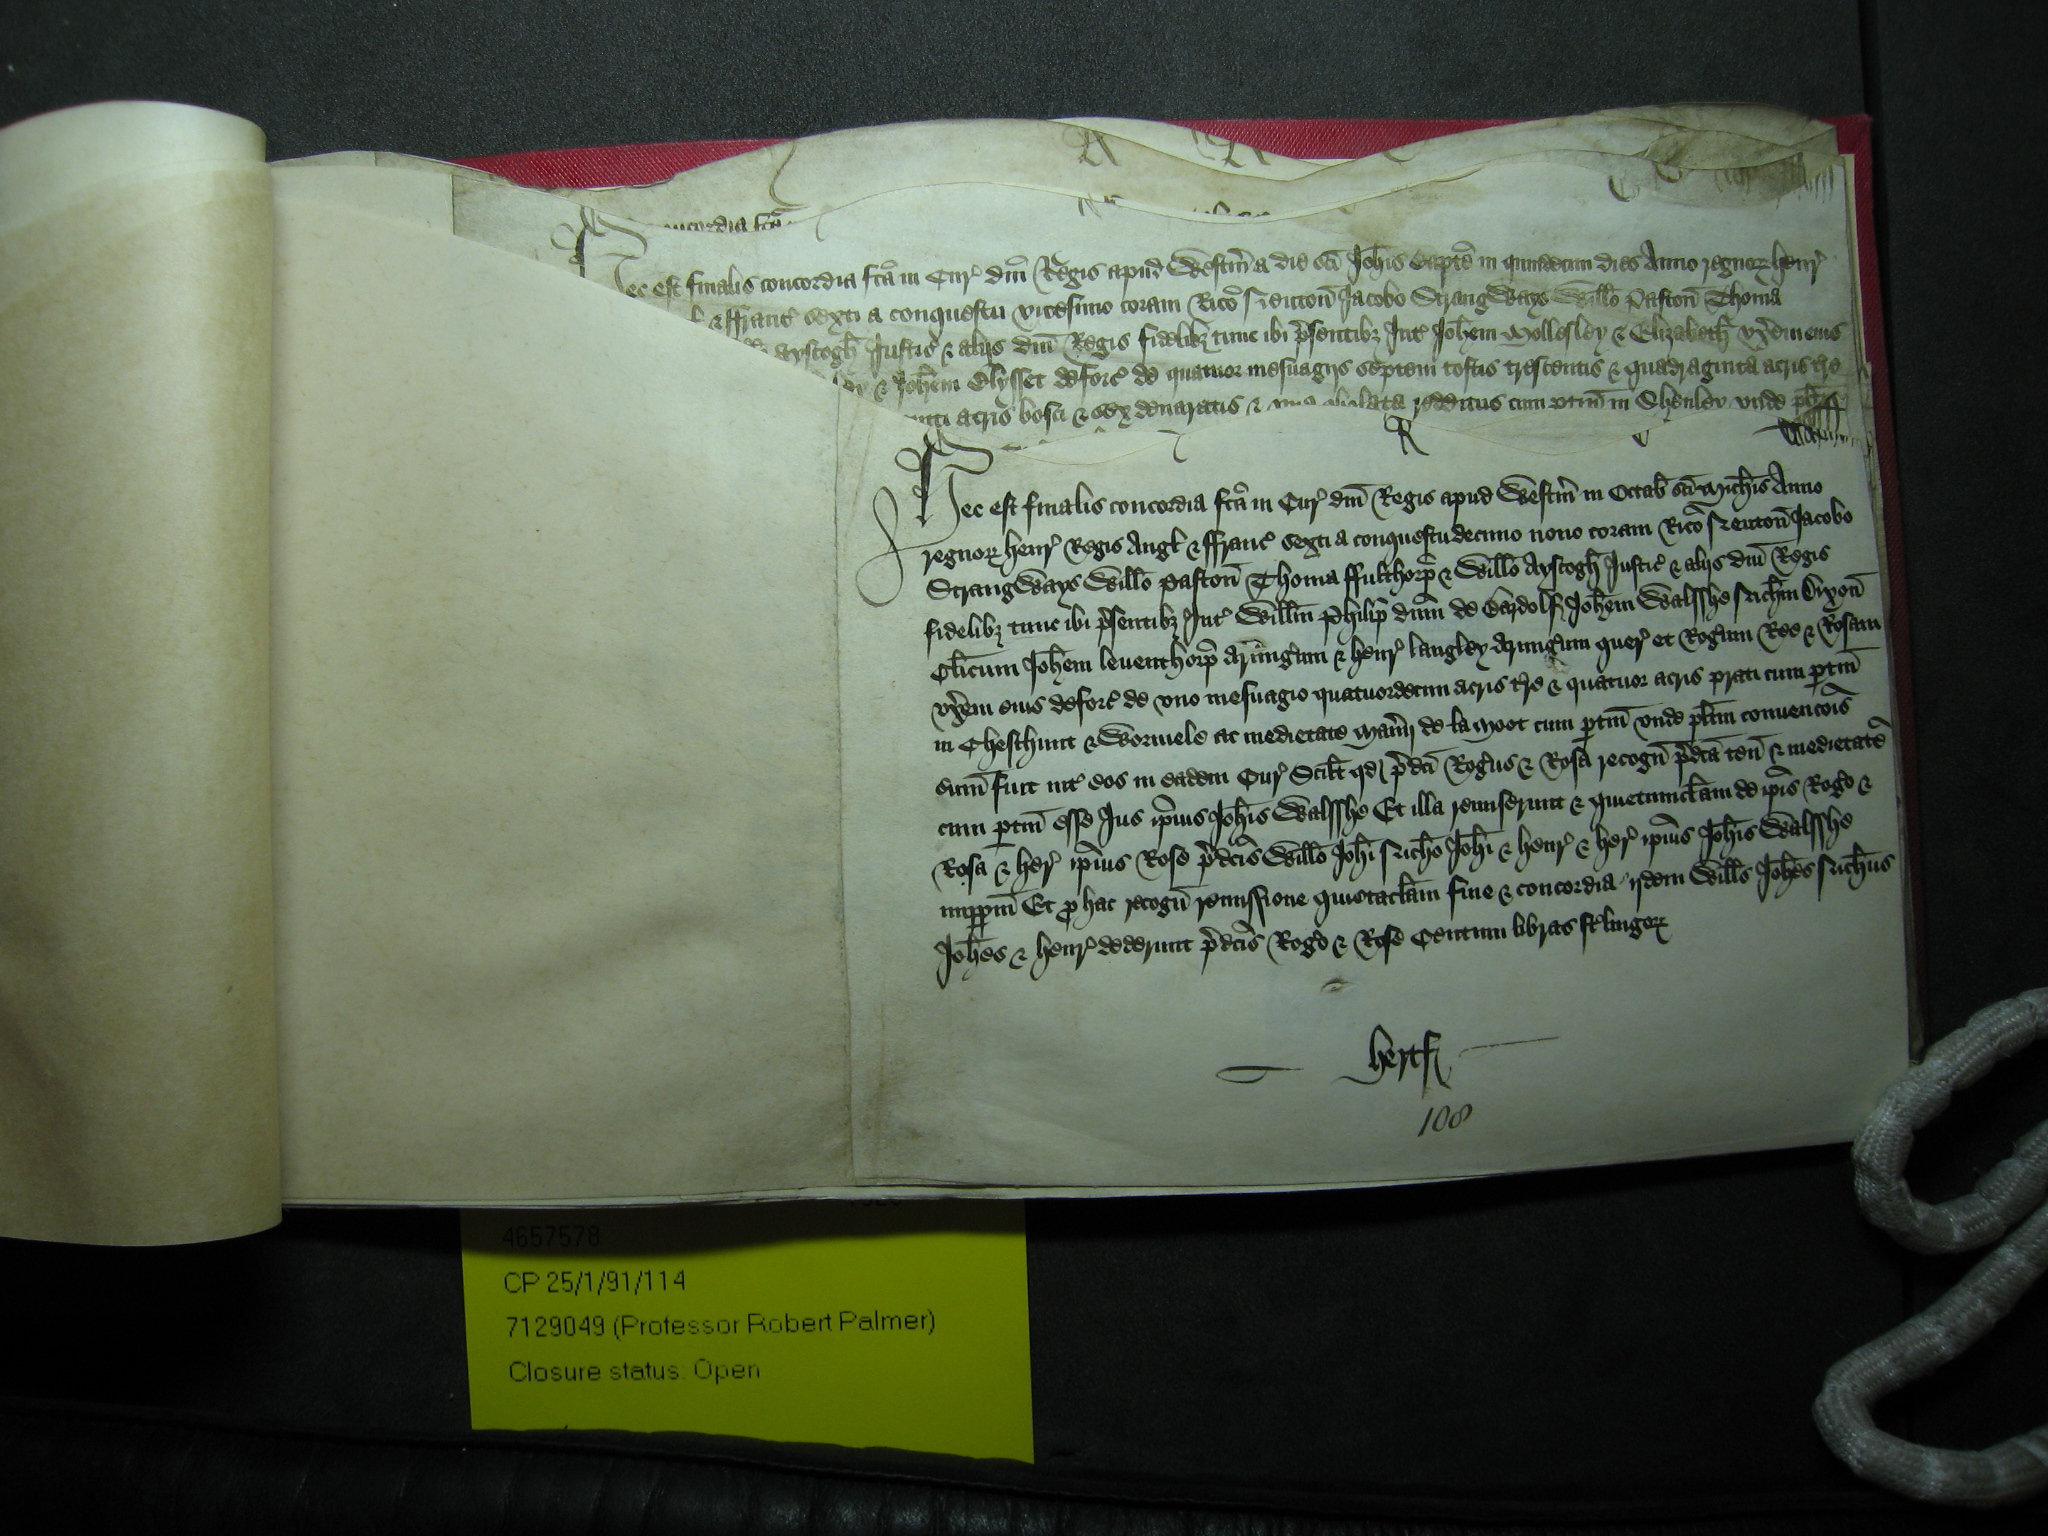 concordia fca
Hec est finalis concordia fca in Cur dni Regis apud Westm a die sci Johis Bapte in quindecim dies Anno regnor Henr
& Franc sexti a conquestu vicesimo coram Rico Neuton Jacobo Strangways Willo Paston Thoma
Ayscogh Justic & aliis dni Regis fidelibz tunc ibi psentibz Int Johem Wollesley & Elizabeth vxem eius
& Johem Elysset deforc de quatuor mesuagiis septem toftis trescentis & quadraginta acris tre
acris bosci & sex denaratis & una obolata redditus cum ptin in Shenley unde plitm
Hec est finalis concordia fca in Cur dni Regis apud Westm in Octab sci Michis Anno
regnor Henr Regis Angl & Franc sexti a conquestu decimo nono coram Rico Neuton Jacobo
Strangways Willo Paston Thoma ffulthorp & Willo Ayscogh Justic & aliis dni Regis
fidelibz tunc ibi psentibz Int Willm Phelip dnm de Bardolf Johem Walsshe Nichm Dixon
Clicum Johem Leuenthorp armigum & Henr Langley armigum quer et Rogum Ree & Rosam
vxem eius deforc de vno mesuagio quatuordecim acris tre & quatuor acris prati cum ptin
in Chesthunt & Wormele ac medietate Manij de la Moot cum ptin vnde plitm convencois
sum fuit int eos in eadem Cur Scilt qd pdci Rogus & Rosa recogn pdca ten & medietate
cum ptin esse Jus ipius Johis Walsshe Et illa remiserunt & quietumclam de ipis Rogo &
Rosa & her ipius Rose pdcis Willo Johi Nicho Johi & Henr & her ipius Johis Walsshe
imppm Et p hac recogn remissione quietaclam fine & concordia idem Wills Johes Nichus
Johes & Henr dederunt pdcis Rogo & Rose Centum libras stlingor
Hertf
108
4657578
CP 25/1/91/114
7129049 (Professor Robert Palmer)
Closure status: Open